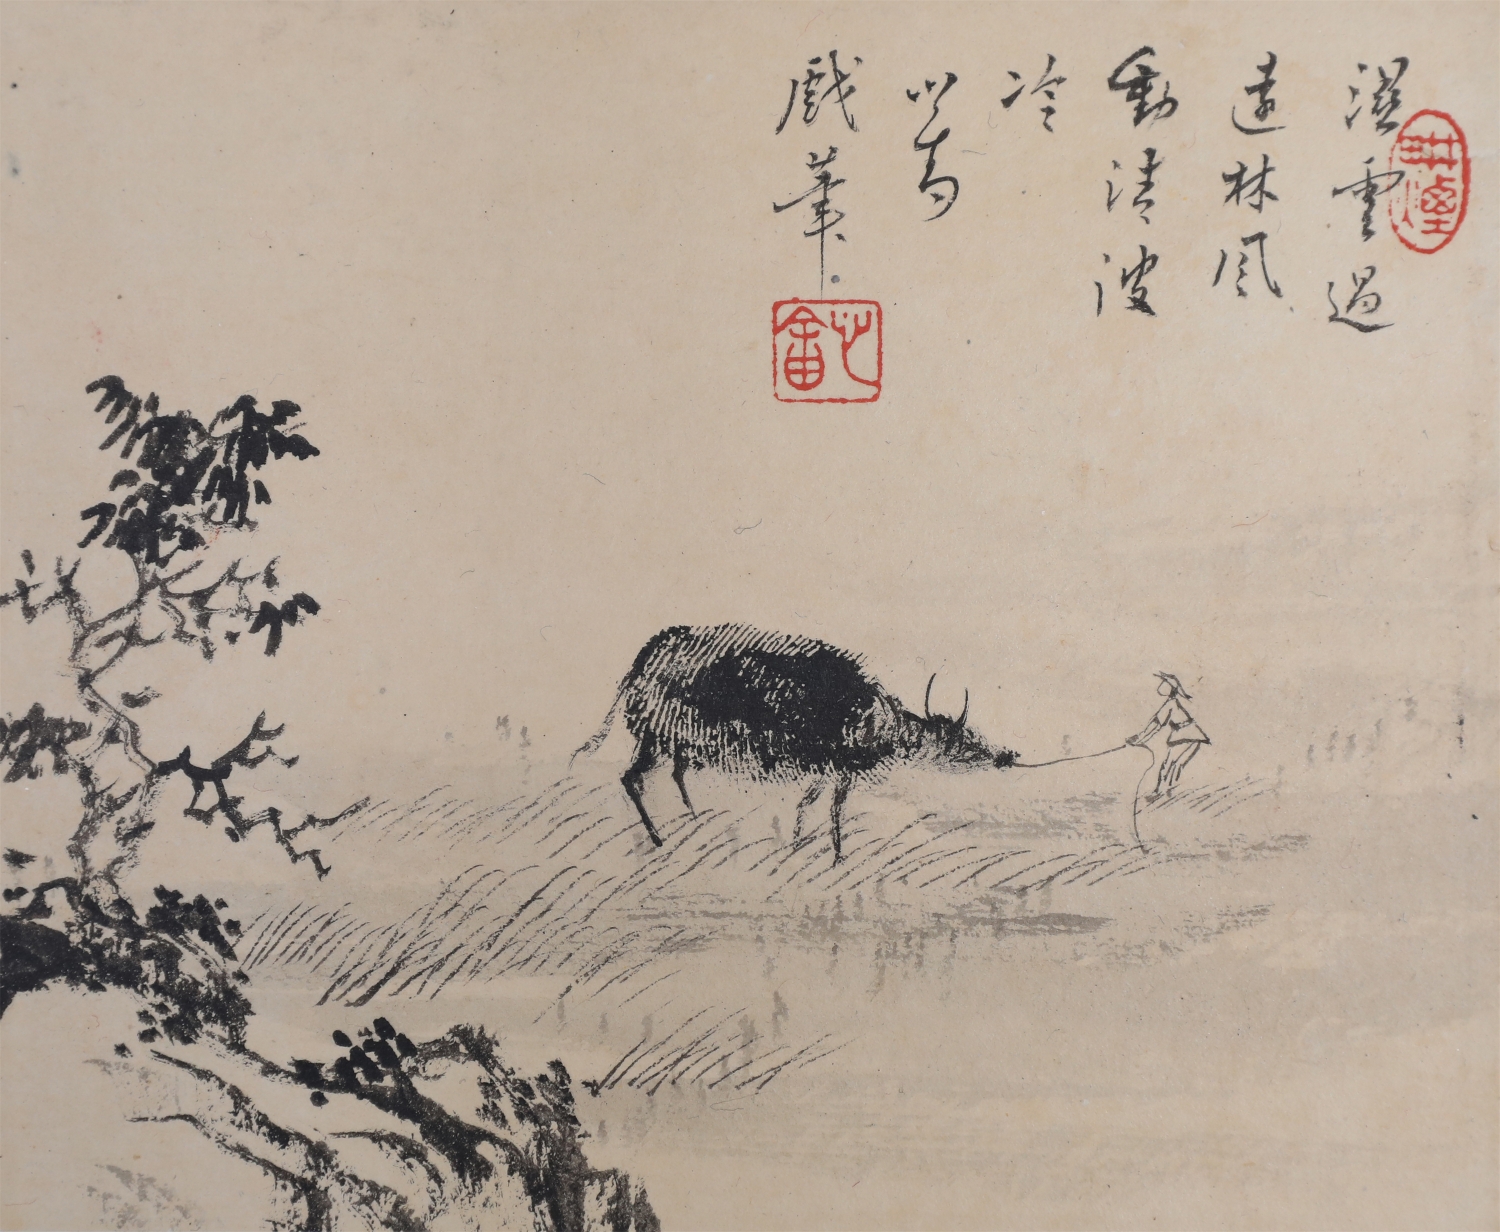 溼雲過
遠林風
動清波
冷
心畬
戲筆
心畬